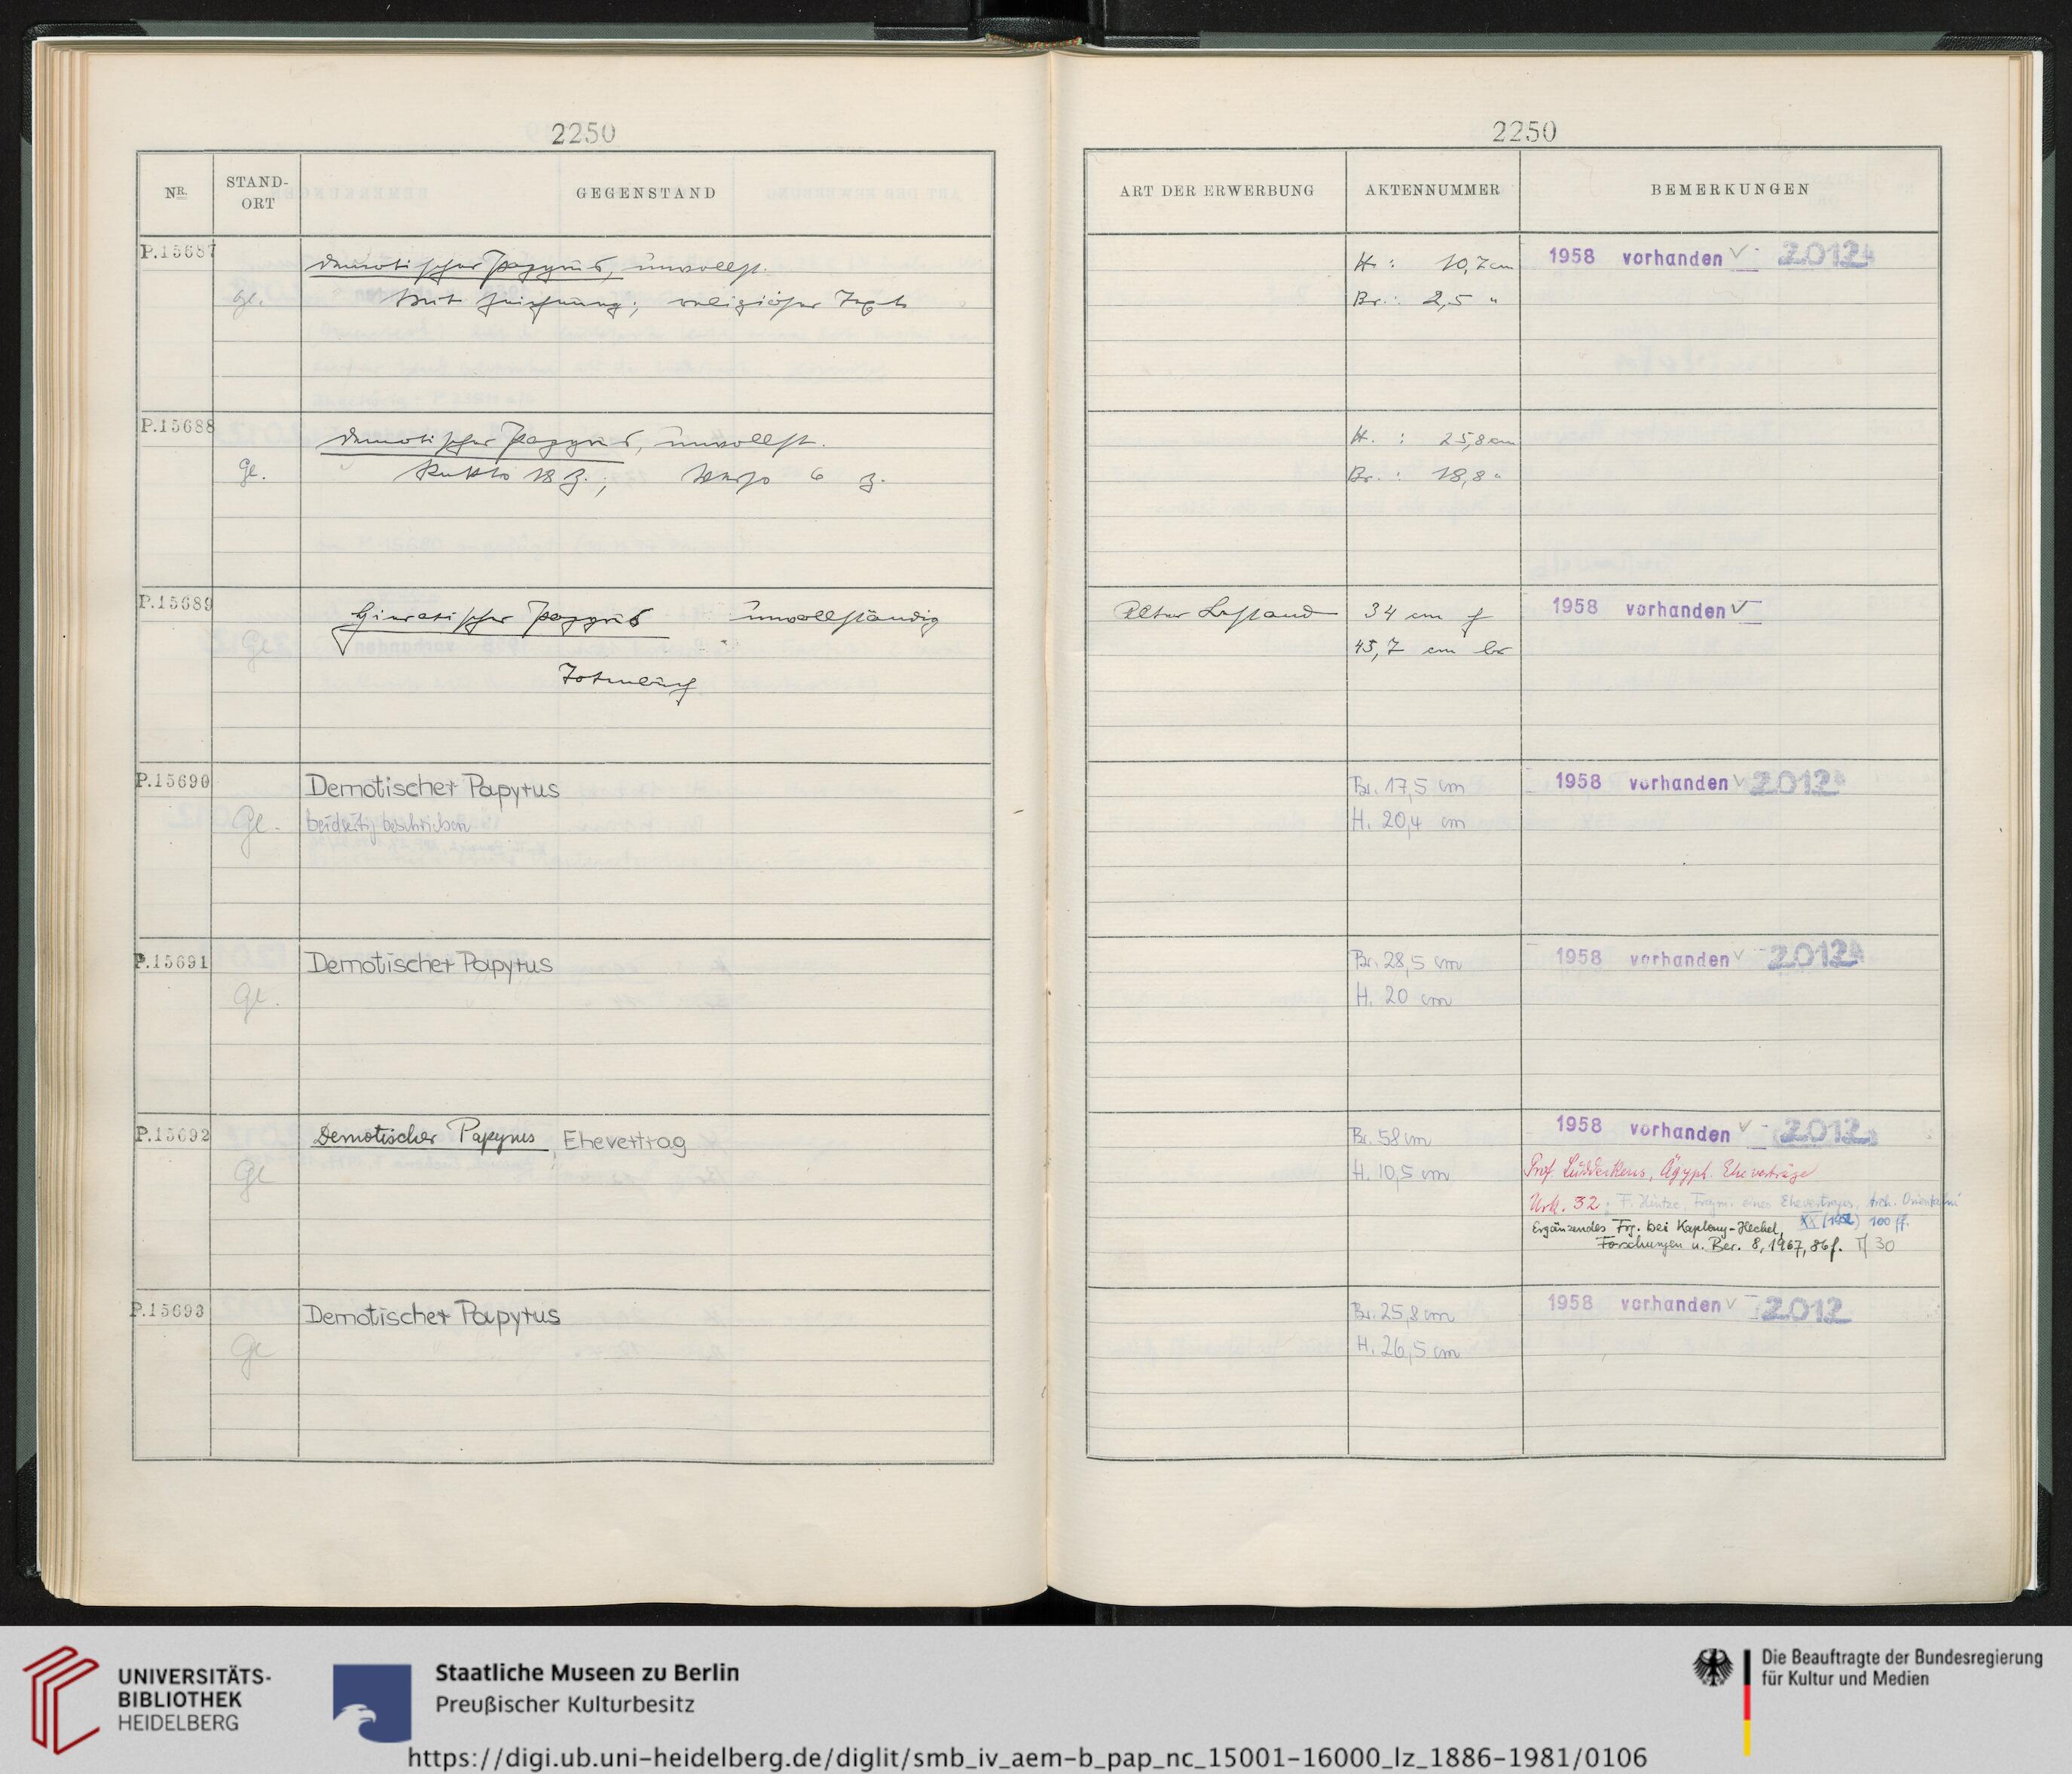 2250
2250
NR.
STAND-
ORT
GEGENSTAND
ART DER ERWERBUNG
AKTENNUMMER
BEMERKUNGEN
P.15687
Demotischer Papyrus, unvollst.
H. : 10,7 cm
1958 vorhanden ✓ - 2012
Gl.
Mit Zeichnung; religiöser Text
Br. : 2,5 "
P.15688
Demotischer Papyrus, unvollst.
H. : 25,8 cm
Gl.
Rekto 18 Z.; Verso 6 Z.
Br. : 18,8 "
P.15689
Hieratischer Papyrus unvollständig
Alter Bestand
34 cm h
1958 vorhanden ✓
Gl
45,7 cm br
Totenbuch
P.15690
Demotischer Papyrus
Br. 17,5 cm
1958 vorhanden ✓ 2012
Gl.
beidseitig beschrieben
H. 20,4 cm
P.15691
Demotischer Papyrus
Br. 28,5 cm
1958 vorhanden ✓ - 2012
Gl.
H. 20 cm
P.15692
Demotischer Papyrus, Ehevertrag
Br. 58 cm
1958 vorhanden ✓ - 2012
Gl
H. 10,5 cm
Prof. Lüddeckens, Ägypt. Eheverträge
Urk. 32; F. Hintze, Fragm. eines Ehevertrages, Arch. Orientální
XX (1952) 100 ff.
Ergänzendes Frg. bei Kaplony-Heckel,
Forschungen u. Ber. 8, 1967, 86f. 30
P.15693
Demotischer Papyrus
Br. 25,8 cm
1958 vorhanden ✓ - 2012
Gl
H. 26,5 cm
UNIVERSITÄTS-
BIBLIOTHEK
HEIDELBERG
Staatliche Museen zu Berlin
Preußischer Kulturbesitz
Die Beauftragte der Bundesregierung
für Kultur und Medien
https://digi.ub.uni-heidelberg.de/diglit/smb_iv_aem-b_pap_nc_15001-16000_lz_1886-1981/0106